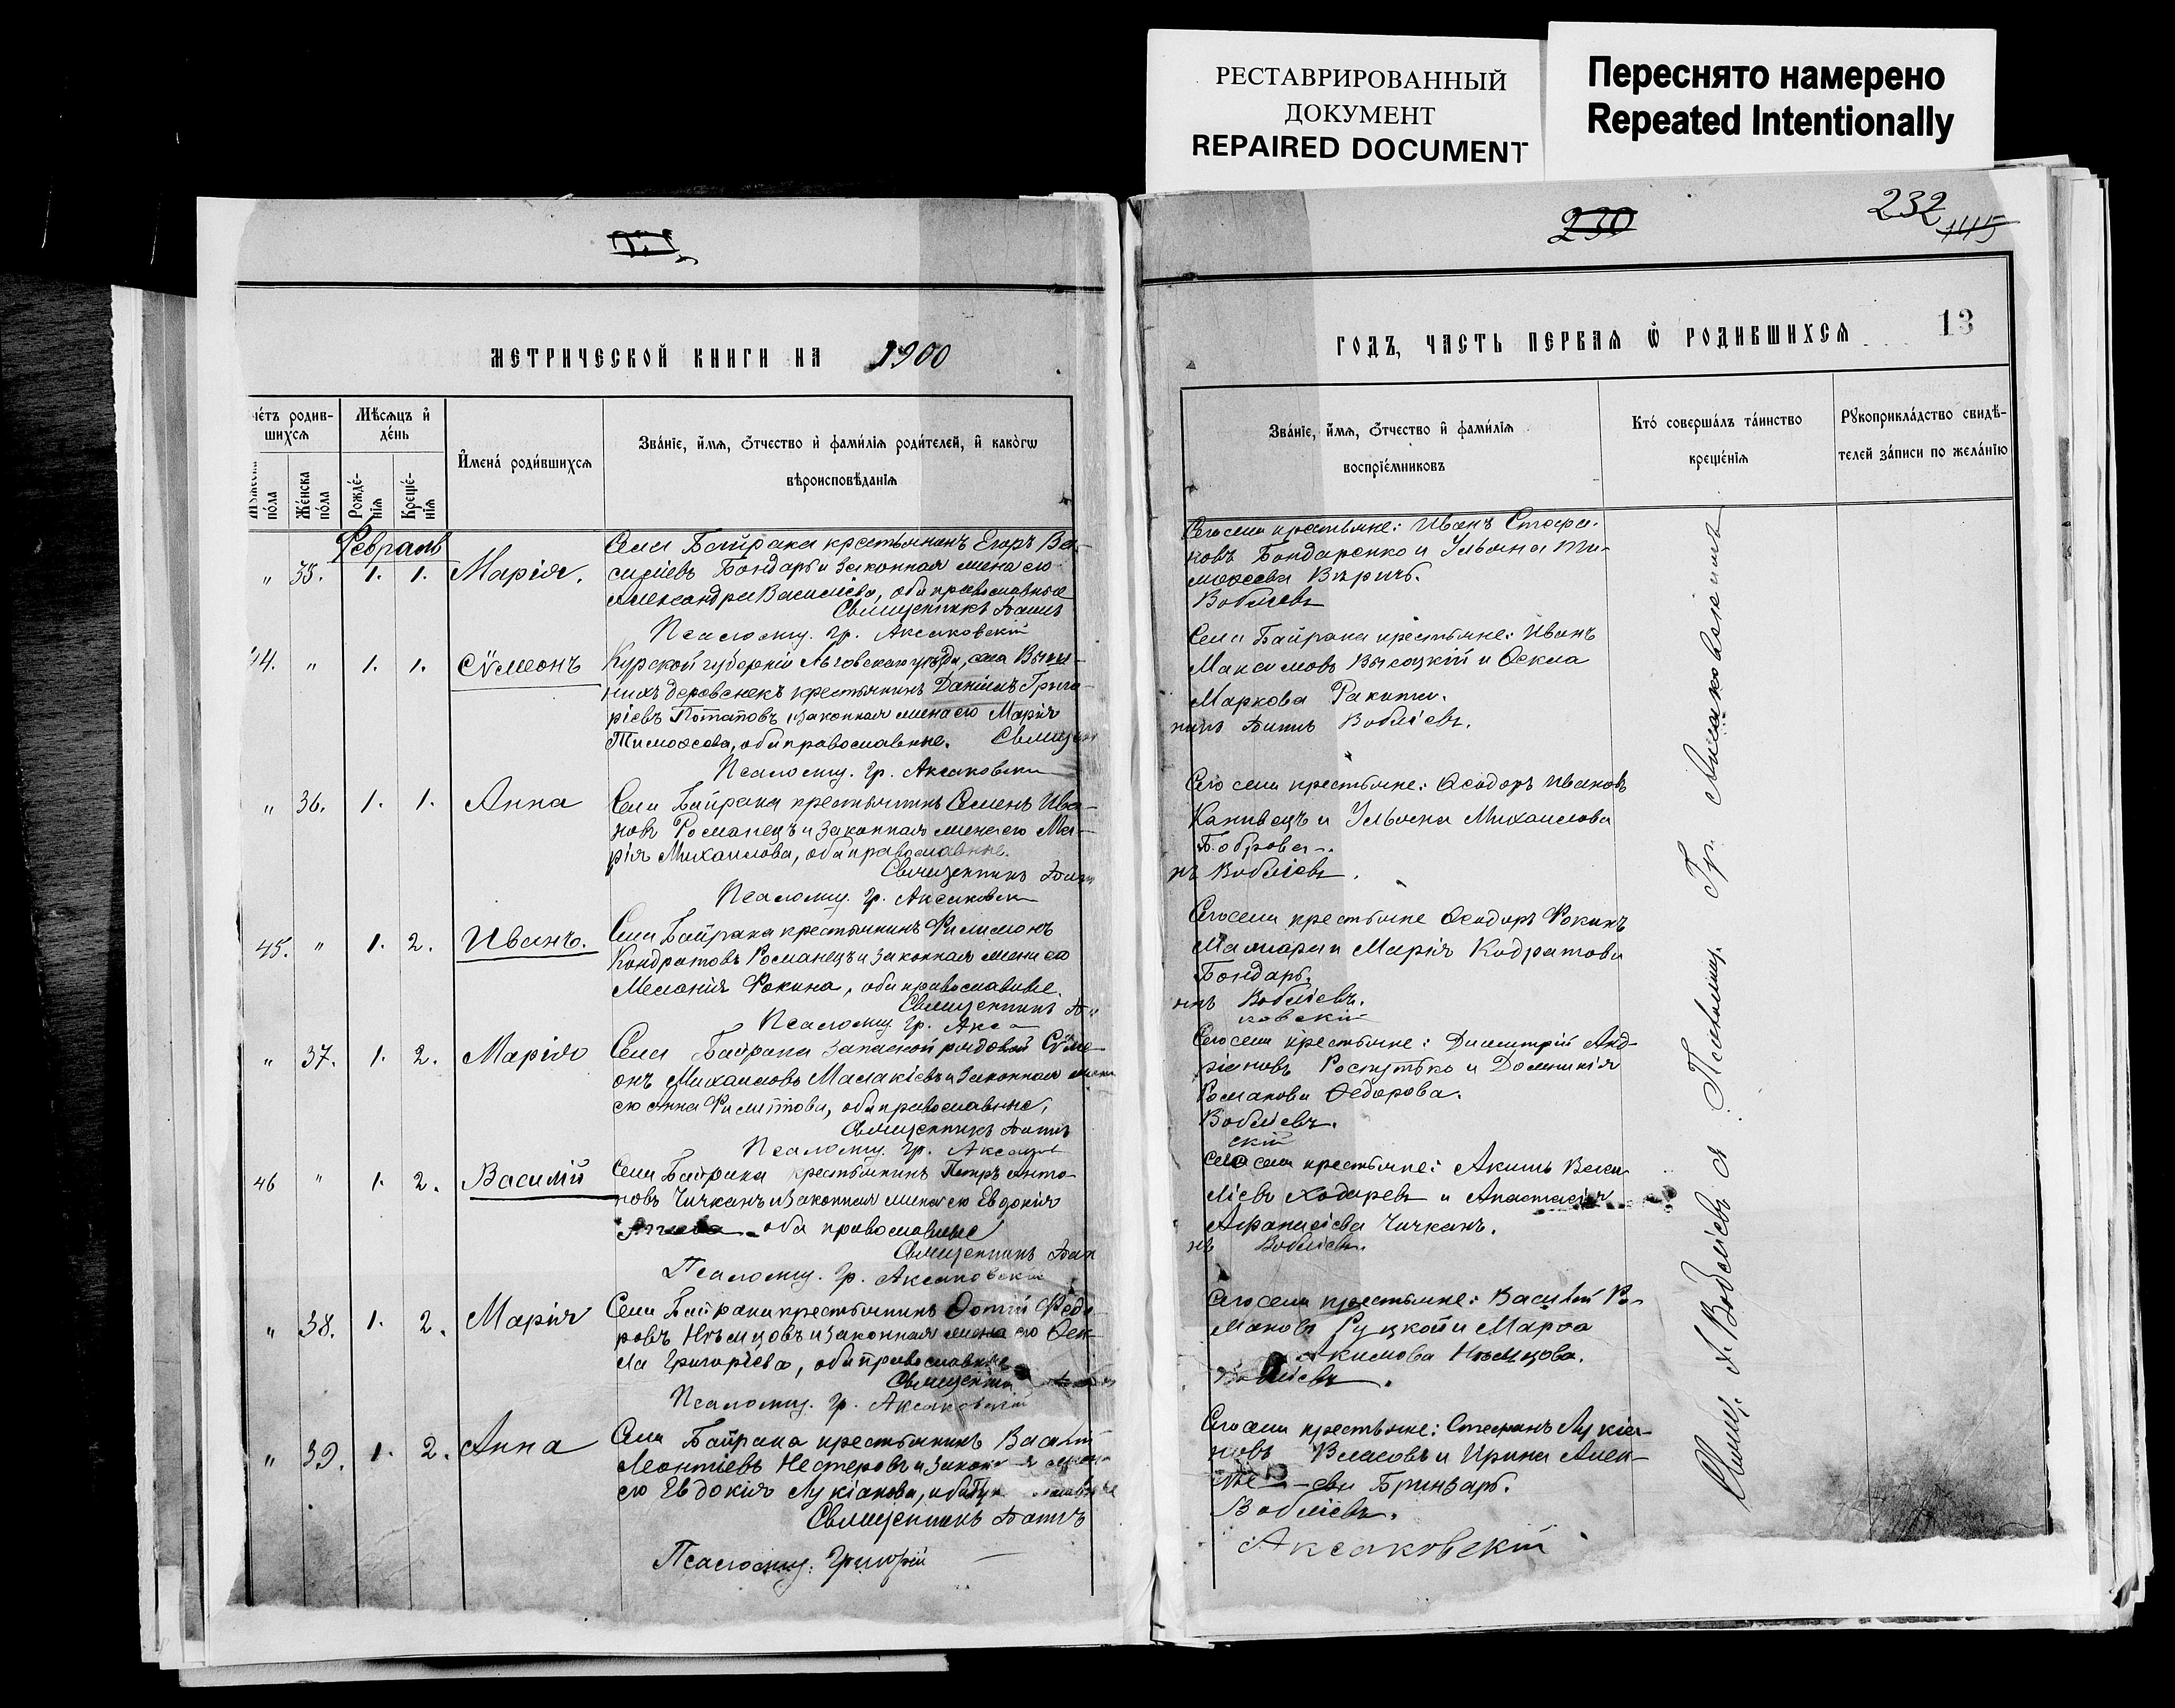 РЕСТАВРИРОВАННЫЙ
ДОКУМЕНТ
REPAIRED DOCUMENT
Переснято намерено
Repeated Intentionally
230
232
145
МЕТРИЧЕСКОЙ КНИГИ НА 1900
ГОДЪ, ЧАСТЬ ПЕРВАЯ Ѡ РОДИВШИХСЯ
13
чéтъ родив-
шихся
Мѣсяцъ и҆
дéнь
И҆мена́ роди́вшихся
Зва́нїе, и҆́мя, ѻ҆́тчество и҆ фами́лїя роди́телей, и҆ како́гѡ
вѣроисповѣ́данїя
пóла
Жéнска
пóла
Рождé-
нїя
Крещé-
нїя
Зва́нїе, и҆́мя, ѻ҆́тчество и҆ фами́лїя
воспрїе́мниковъ
Кто́ соверша́лъ та́инство
креще́нїя
Рꙋкоприкла́дство свидѣ́-
телей за́писи по жела́нїю
Февраль
" 35. 1. 1. Марія.
Села Байрака крестьянинъ Егоръ Ва-
силіевъ Бондарь и законная жена его
Александра Васильева, оба православные
Священникъ
Псаломщ. Гр. Аксаковскій
Сего села крестьяне: Иванъ Стефа-
новъ Бондаренко и Ульяна Ти-
моѳеева
Воблiевъ
44. " 1. 1. Сѵмеонъ
Курской губерніи Льговскаго уѣзда, села
деревенекъ крестьянинъ Даніилъ Григо-
ріевъ Потаповъ и законная жена его Марія
Тимоѳеева, оба православные. Священ
Псаломщ. Гр. Аксаковскій
Села Байрака крестьяне: Иванъ
Максимовъ Высоцкій и Ѳекла
Маркова
Воблiевъ.
" 36. 1. 1. Анна
Села Байрака крестьянинъ Семенъ Ива-
новъ Романецъ и законная жена его Ма-
рія Михаилова, оба православные.
Священникъ
Псаломщ. Гр. Аксаковскій
Сего села крестьяне: Ѳеодоръ Ивановъ
Канивецъ и Ульяна Михаилова
Боброва.
нъ Воблiевъ.
45. " 1. 2. Иванъ.
Села Байрака крестьянинъ Филимонъ
Кондратовъ Романецъ и законная жена его
Меланія Фокина, оба православные.
Священникъ
Псаломщ. Гр. Акса
Сего села крестьяне Ѳеодоръ Фокинъ
и Марія Кодратова
Бондарь.
Воблiевъ.
ковскій
" 37. 1. 2. Марія
Села Байрака запасной рядовой Сѵме-
онъ Михаиловъ Малакіевъ и законная жена
его Анна Филиппова, оба православные,
Священникъ
Псаломщ. Гр. Аксаков
Сего села крестьяне: Димитрій Анд-
ріановъ Роспутько и Домникія
Романова Ѳедорова.
Воблiевъ.
скій
46 " 1. 2. Василій
Села Байрака крестьянинъ Петръ Анто-
новъ Чичканъ и законная жена его Евдокія
оба православные
Священникъ
Псаломщ. Гр. Аксаковскій
Сего села крестьяне: Акимъ Васи-
ліевъ Ходыревъ и Анастасія
Аѳанасіева Чичканъ.
нъ Воблiевъ.
" 38. 1. 2. Марія
Села Байрака крестьянинъ Фотій Федо
ровъ Нѣмцовъ и законная жена его Ѳек-
ла Григоріева, оба православные
Священни
Псаломщ. Гр. Аксаковскій
Сего села крестьяне: Василій Ро-
мановъ Руцкой и Марѳа
Акимова Нѣмцова.
" 39. 1. 2. Анна
Села Байрака крестьянинъ Василій
Леонтіевъ Нестеровъ и закон жена
его Евдокія Лукіанова,
Священникъ
Псаломщ: Григорій
Сего села крестьяне: Стефанъ Лукіа-
новъ Власовъ и Ирина Алек-
Воблiевъ.
Аксаковскій
Свящ: Воблiевъ Псаломщ. Гр. Аксаковскій